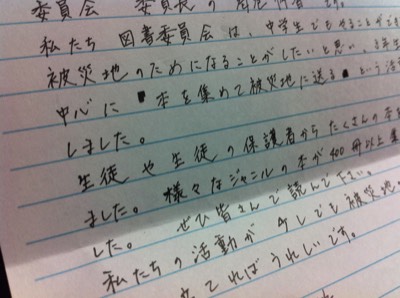 委員会 委員長の
私たち 図書委員会は、中学生でもやることができ
被災地のためになることがしたいと思い、3年生
中心に 本を集めて被災地に送る という活
しました。
生徒や生徒の保護者からたくさんの本
ました。様々なジャンルの本が400冊以上集
した。 ぜひ皆さんで読んで下さい。
私たちの活動が 少しでも被災地の
てればうれしいです。